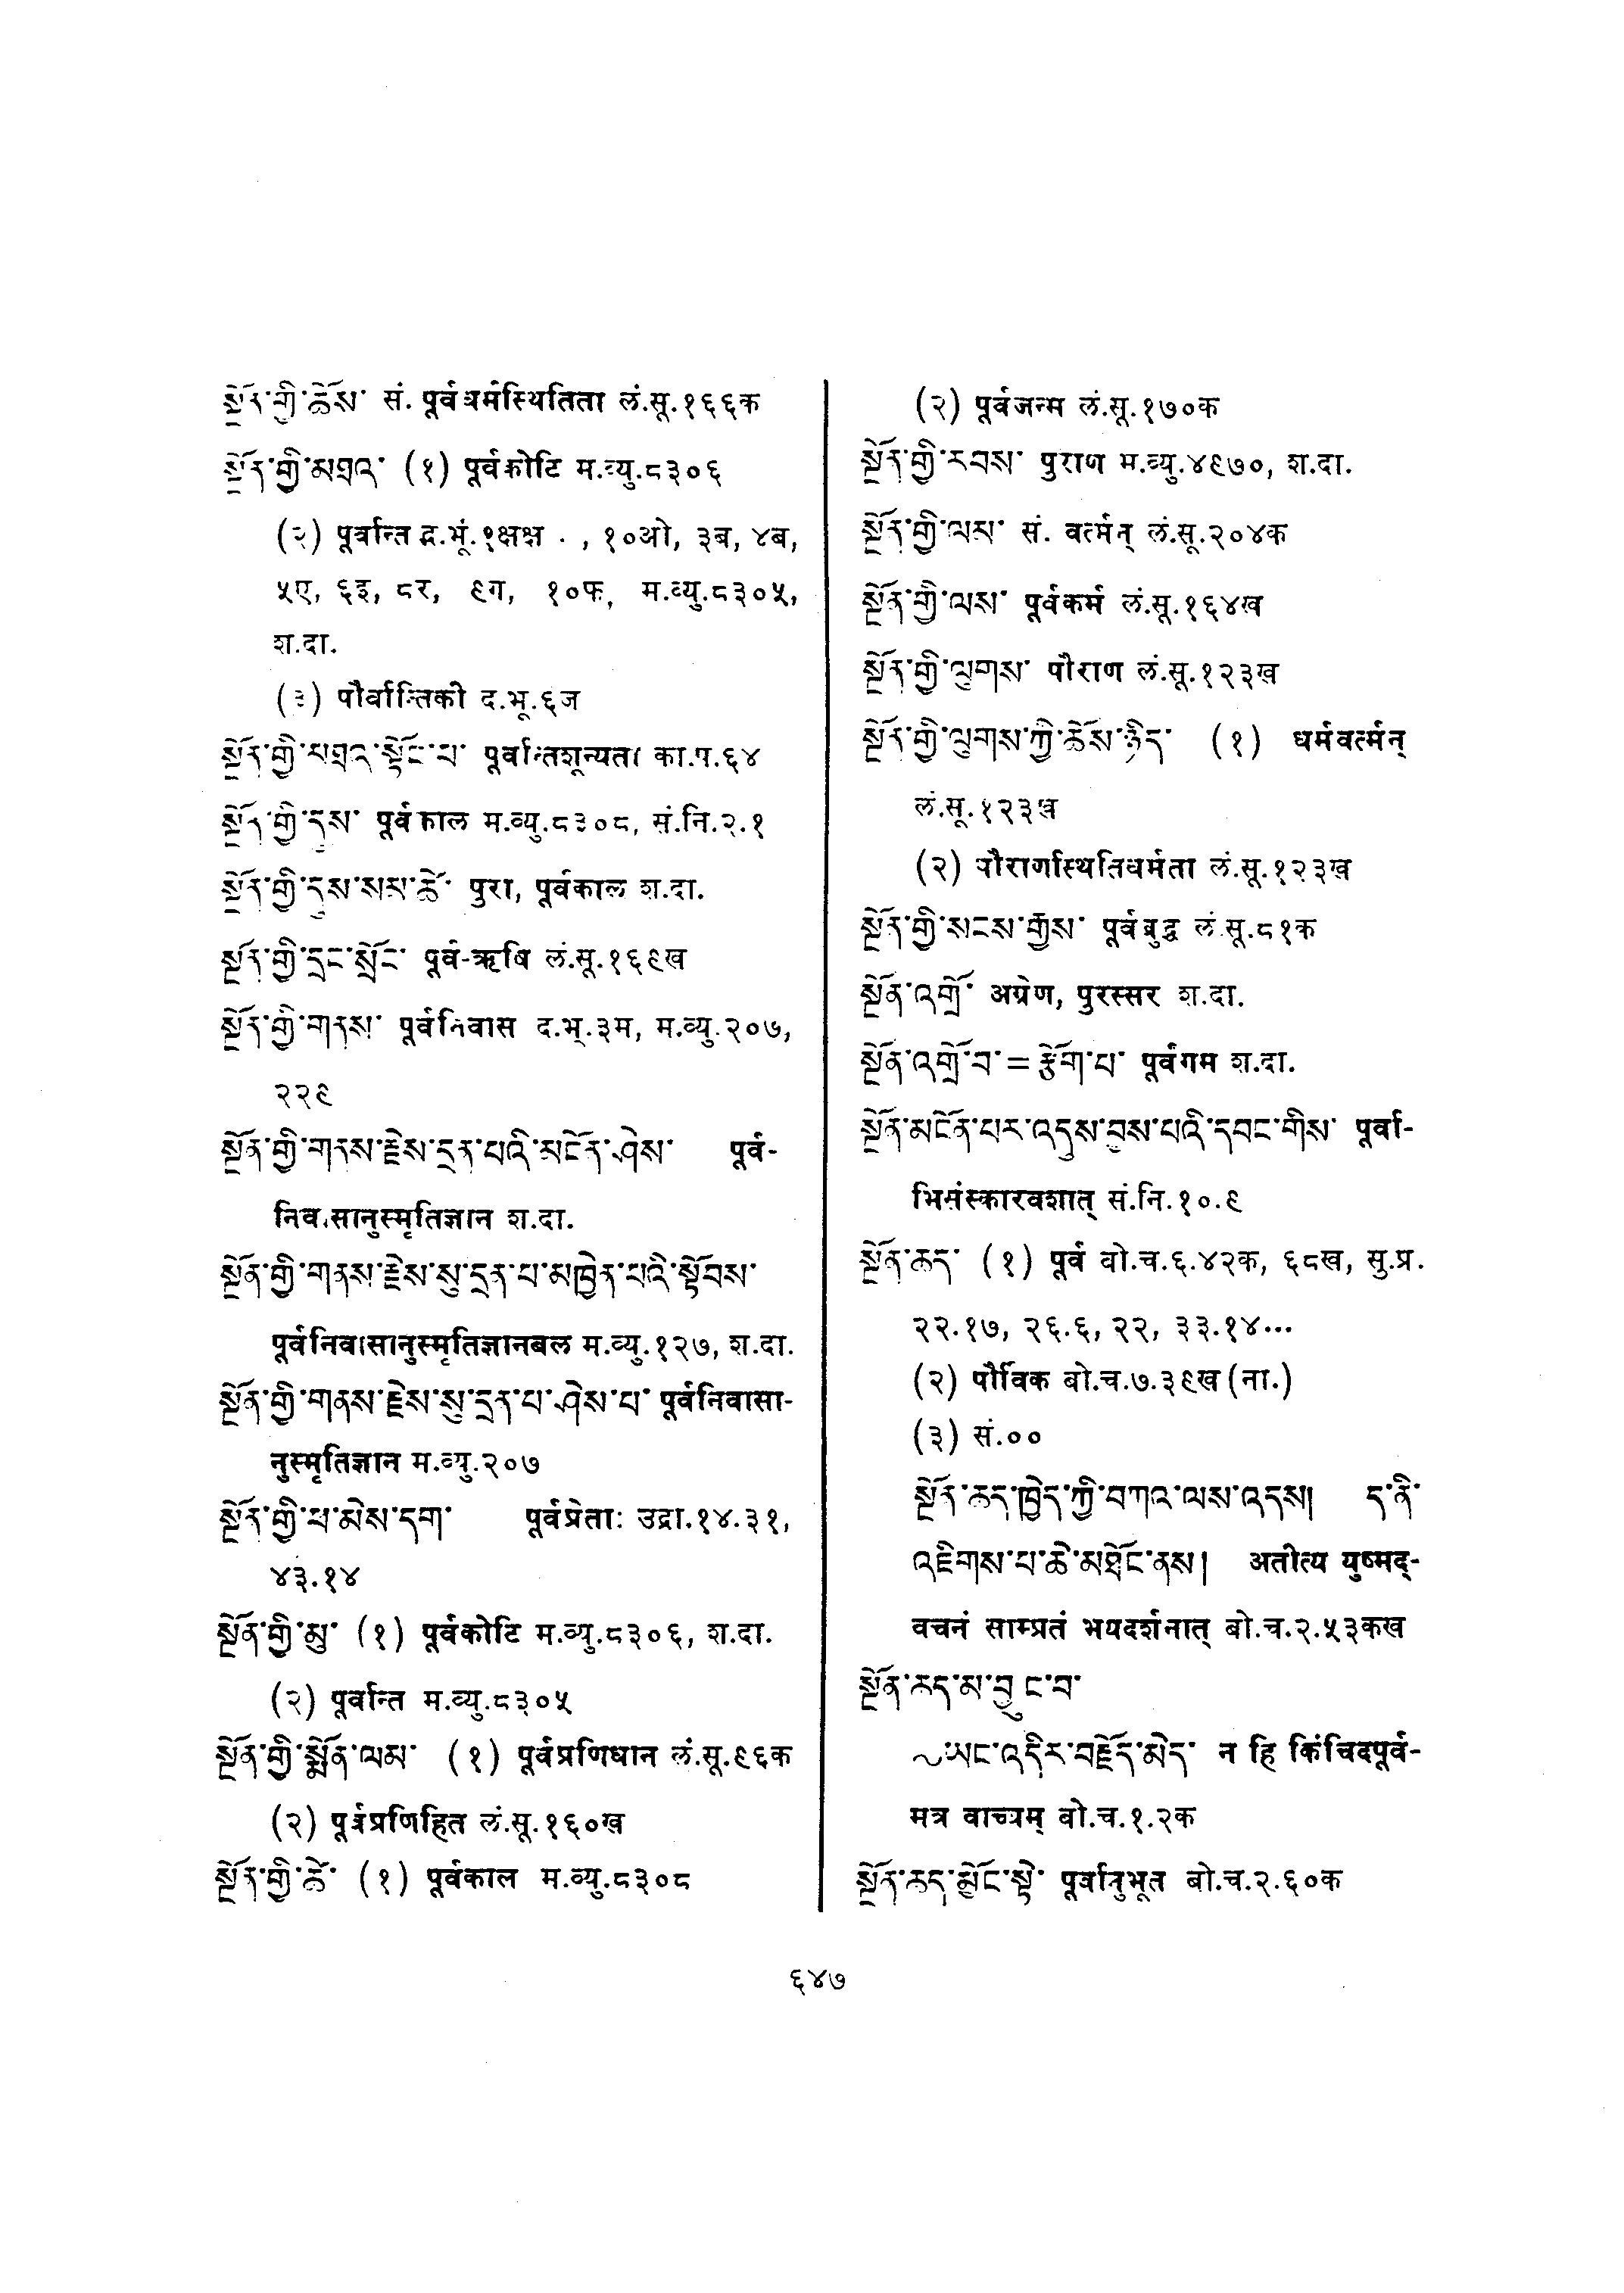 སྔོན་གྱི་ཆོས་ सं. पूर्वधर्मस्थितिता लं.सू.१६६क
སྔོན་གྱི་མཐའ་ (१) पूर्वकोटि म.व्यु.८३०६
(२) पूर्वान्त द.भूं.१क्षक्ष . , १०ओ, ३ब, ४ब,
५ए, ६इ, ८र, ९ग, १०फ, म.व्यु.८३०५,
श.दा.
(३) पौर्वान्तिकी द.भू.६ज
སྔོན་གྱི་མཐའ་སྟོང་པ་ पूर्वान्तशून्यता का.प.६४
སྔོན་གྱི་དུས་ पूर्वकाल म.व्यु.८३०८, सं.नि.२.१
སྔོན་གྱི་དུས་སམ་ཚེ་ पुरा, पूर्वकाल श.दा.
སྔོན་གྱི་དྲང་སྲོང་ पूर्व-ऋषि लं.सू.१६९ख
སྔོན་གྱི་གནས་ पूर्वनिवास द.भू.३म, म.व्यु.२०७,
२२९
སྔོན་གྱི་གནས་རྗེས་དྲན་པའི་མངོན་ཤེས་ पूर्व-
निवासानुस्मृतिज्ञान श.दा.
སྔོན་གྱི་གནས་རྗེས་སུ་དྲན་པ་མཁྱེན་པའི་སྟོབས་
पूर्वनिवासानुस्मृतिज्ञानबल म.व्यु.१२७, श.दा.
སྔོན་གྱི་གནས་རྗེས་སུ་དྲན་པ་ཤེས་པ་ पूर्वनिवासा-
नुस्मृतिज्ञान म.व्यु.२०७
སྔོན་གྱི་ཕ་མེས་དག་ पूर्वप्रेताः उद्रा.१४.३१,
४३.१४
སྔོན་གྱི་མུ་ (१) पूर्वकोटि म.व्यु.८३०६, श.दा.
(२) पूर्वान्त म.व्यु.८३०५
སྔོན་གྱི་སྨོན་ལམ་ (१) पूर्वप्रणिधान लं.सू.९६क
(२) पूर्वप्रणिहित लं.सू.१६०ख
སྔོན་གྱི་ཚེ་ (१) पूर्वकाल म.व्यु.८३०८
(२) पूर्वजन्म लं.सू.१७०क
སྔོན་གྱི་རབས་ पुराण म.व्यु.४९७०, श.दा.
སྔོན་གྱི་ལམ་ सं. वर्त्मन् लं.सू.२०४क
སྔོན་གྱི་ལས་ पूर्वकर्म लं.सू.१६४ख
སྔོན་གྱི་ལུགས་ पौराण लं.सू.१२३ख
སྔོན་གྱི་ལུགས་ཀྱི་ཆོས་ཉིད་ (१) धर्मवर्त्मन्
लं.सू.१२३ख
(२) पौराणस्थितिधर्मता लं.सू.१२३ख
སྔོན་གྱི་སངས་རྒྱས་ पूर्वबुद्ध लं.सू.८१क
སྔོན་འགྲོ་ अग्रेण, पुरस्सर श.दा.
སྔོན་འགྲོ་བ་ = རྩོག་པ་ पूर्वगम श.दा.
སྔོན་མངོན་པར་འདུས་བྱས་པའི་དབང་གིས་ पूर्वा-
भिसंस्कारवशात् सं.नि.१०.९
སྔོན་ཆད་ (१) पूर्व बो.च.६.४२क, ६८ख, सु.प्र.
२२.१७, २६.६, २२, ३३.१४...
(२) पौर्विक बो.च.७.३९ख (ना.)
(३) सं.००
སྔོན་ཆད་ཁྱེད་ཀྱི་བཀའ་ལས་འདས། ད་ནི་
འཇིགས་པ་ཆེ་མཐོང་ནས། अतीत्य युष्मद्-
वचनं साम्प्रतं भयदर्शनात् बो.च.२.५३कख
སྔོན་ཆད་མ་བྱུང་བ་
~ཡང་འདིར་བརྗོད་མེད་ न हि किंचिदपूर्व-
मत्र वाच्यम् बो.च.१.२क
སྔོན་ཆད་མྱོང་སྟེ་ पूर्वानुभूत बो.च.२.६०क
६४७